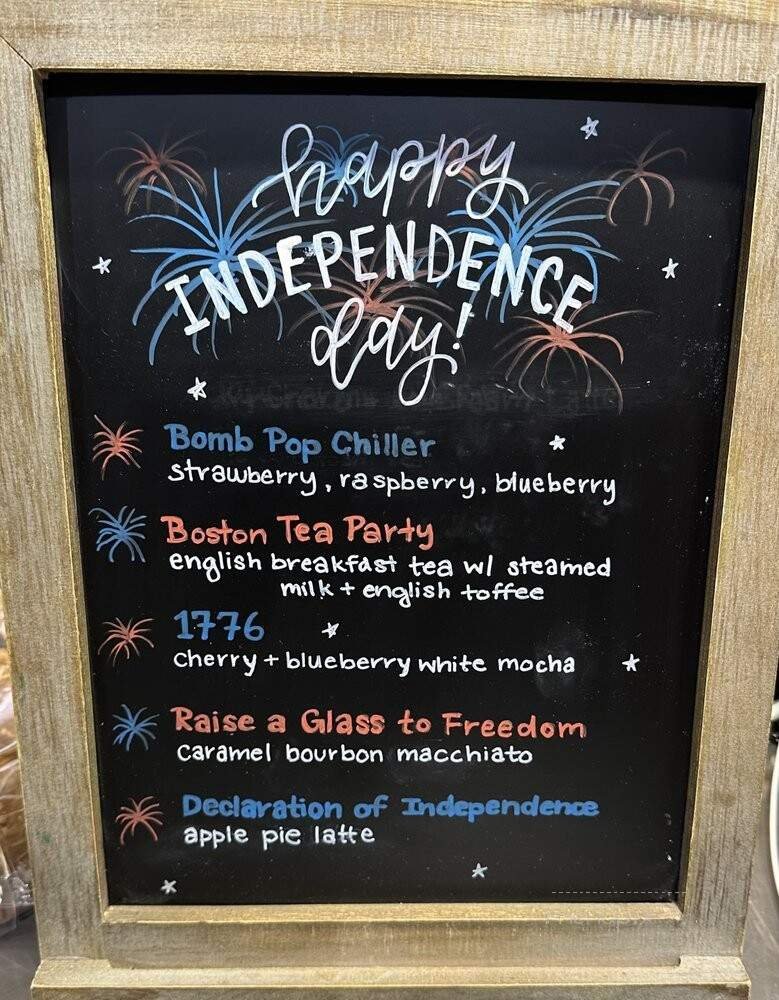 happy
INDEPENDENCE
day!
Bomb Pop Chiller
strawberry, raspberry, blueberry
Boston Tea Party
english breakfast tea w/ steamed
milk + english toffee
1776
cherry + blueberry white mocha
Raise a Glass to Freedom
caramel bourbon macchiato
Declaration of Independence
apple pie latte